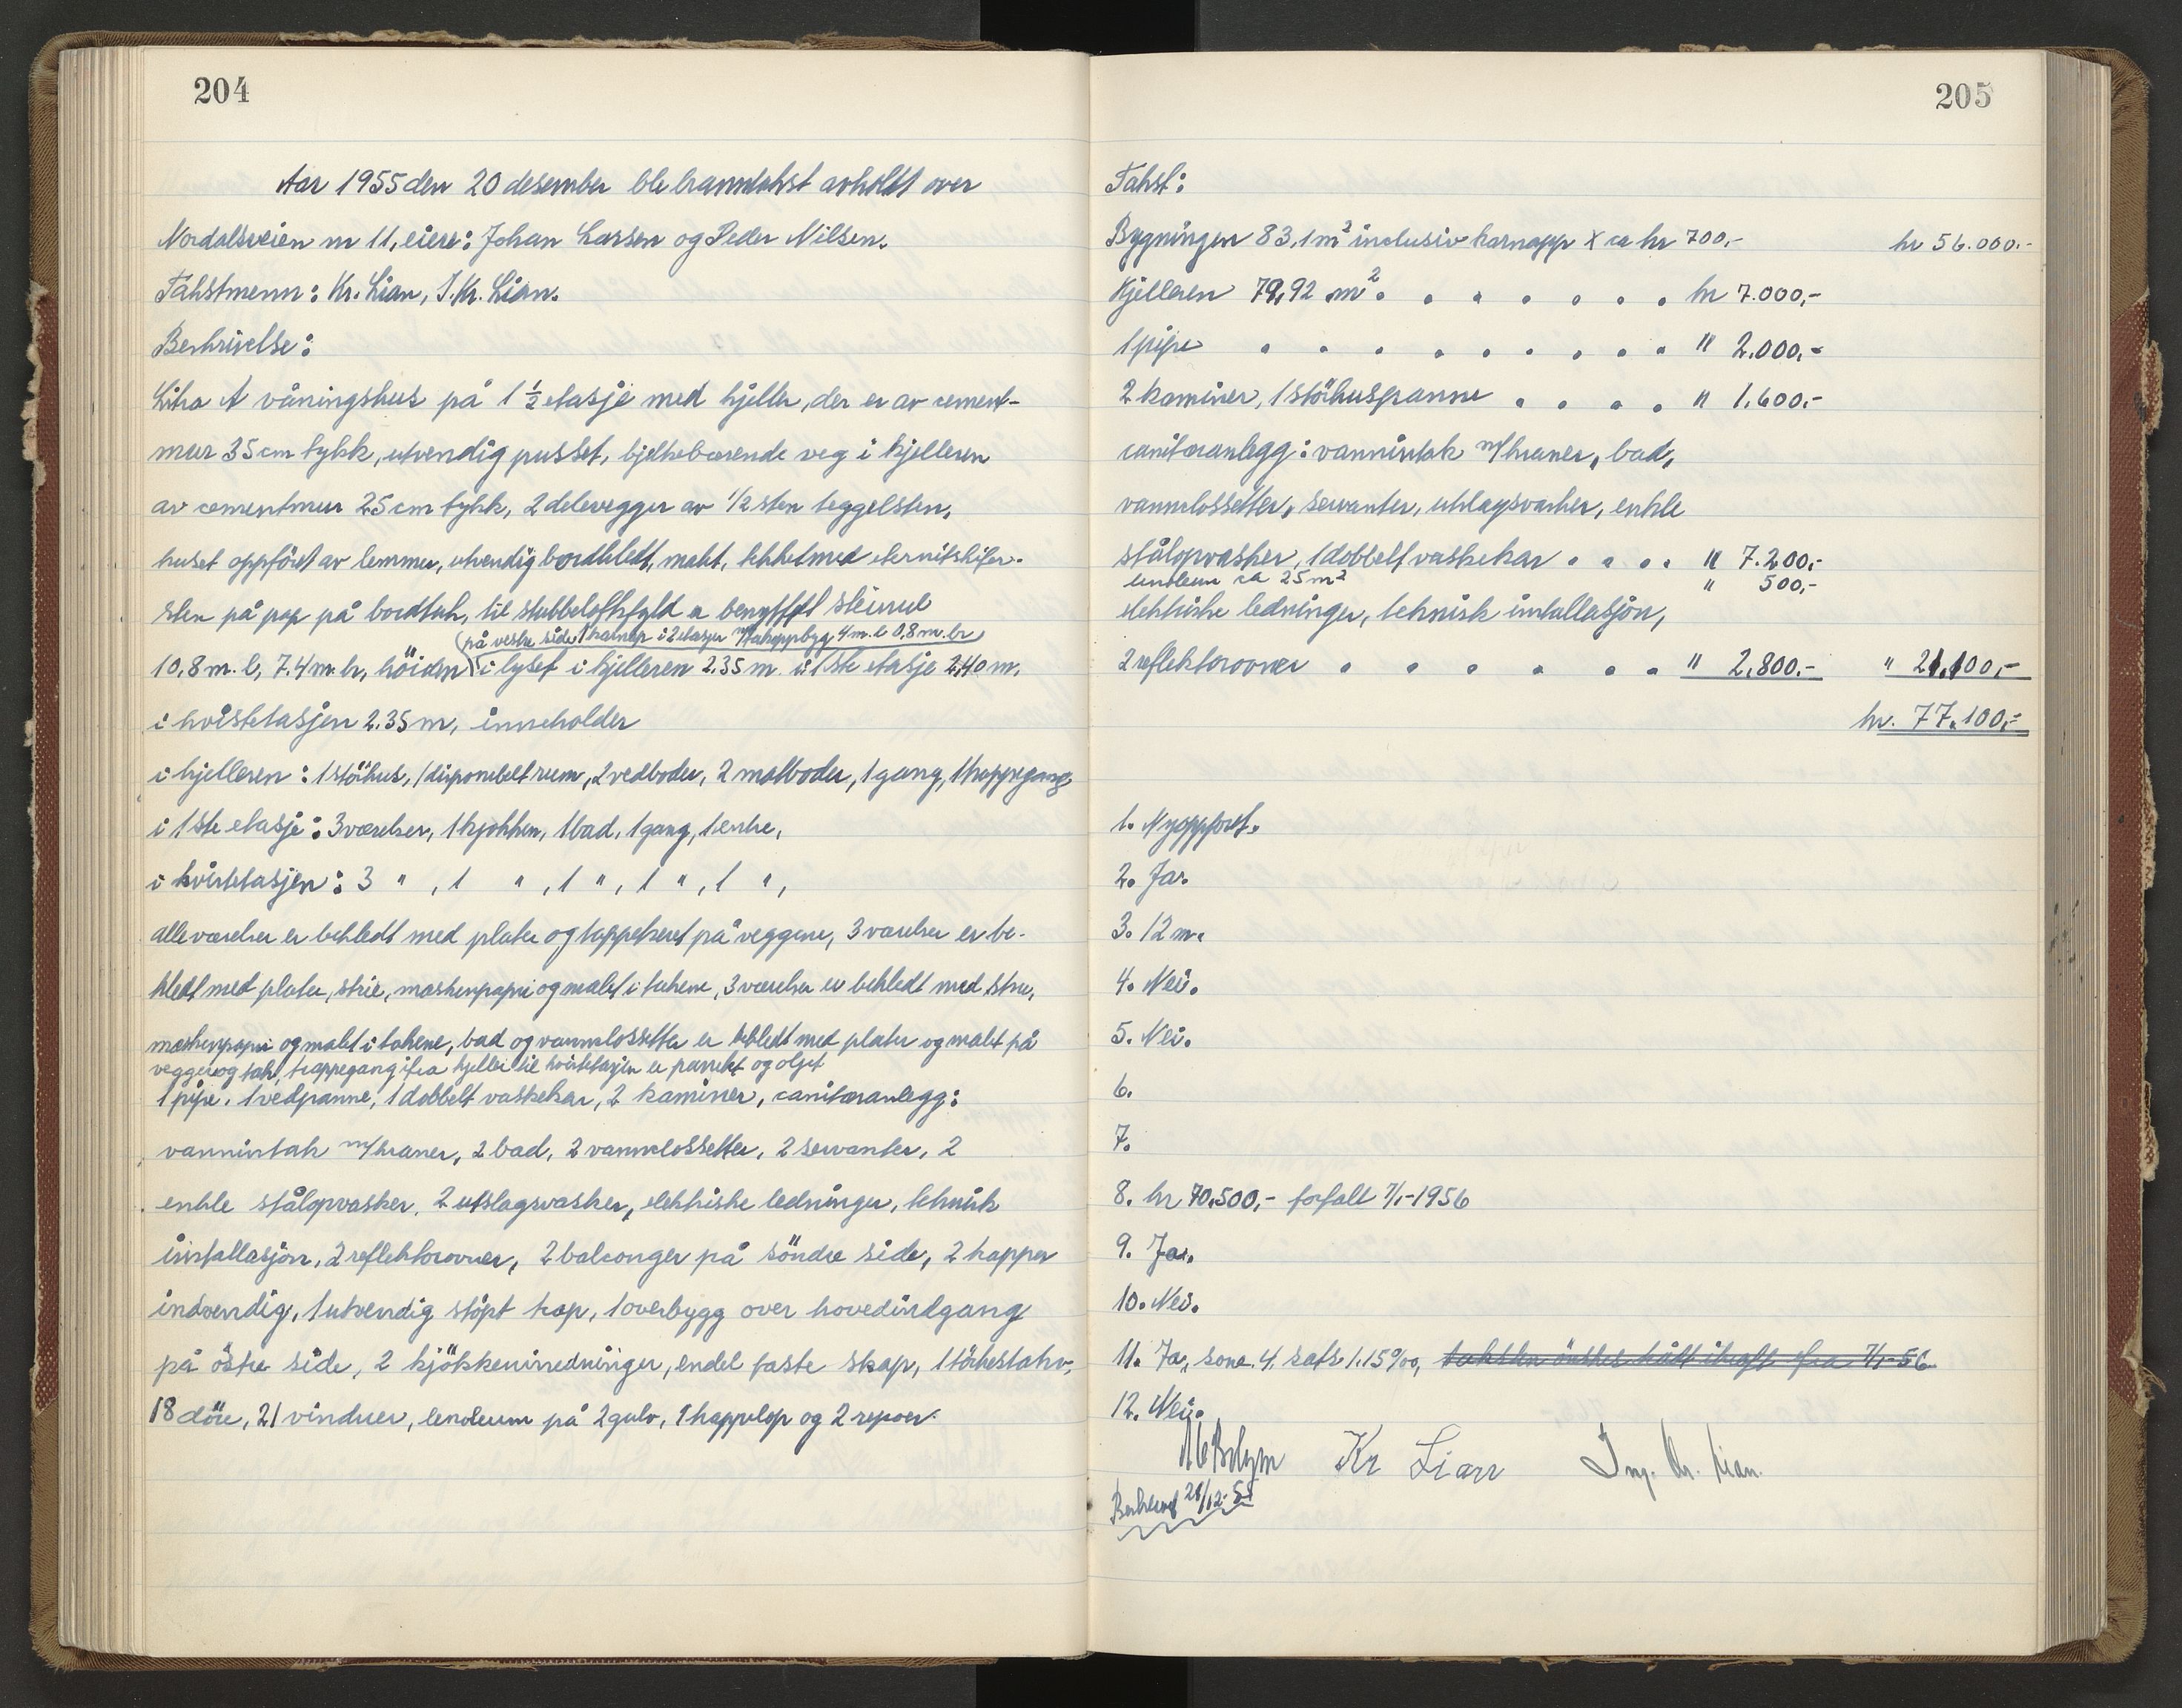 204
Aar 1955 den 20 desember ble branntakst avholdt over
Nordalsveien nr 11, eiere: Johan Larsen og Peder Nilsen.
Takstmenn: Kr. Lian, I. Kr. Lian.
Beskrivelse:
Litra A våningshus på 1 1/2 etasje med kjeller, der er av cement-
mur 35 cm tykk, utvendig pusset, bjelkebærende veg i kjelleren
av cementmur 25 cm tykk, 2 delevegger av 1/2 sten teggelsten,
huset oppföret av lemmer, utvendig bordkledt, malt, tekket med eternitskifer-
sten på pap på bordtak, til stubbeloftfyld er benyttet steinul
(på vestre side 1 karnap i 2 etasjer m/takoppbyg 4 m. l 0,8 m. br)
10,8 m. l, 7.4 m. br, höiden i lyset i kjelleren 2.35 m. i 1ste etasje 2.40 m,
i kvistetasjen 2.35 m, inneholder
i kjelleren: 1 störhus, 1 disponibelt rum, 2 vedboder, 2 matboder, 1 gang, 1 trappegang
i 1ste etasje: 3 værelser, 1 kjøkken, 1 bad, 1 gang, 1 entre,
i kvistetasjen: 3 " , 1 " , 1 " , 1 " , 1 " ,
alle værelser er bekledt med plater og tappetseret på veggene, 3 værelser er be-
kledt med plater, strie, maskenpapir og malt i takene, 3 værelser er bekledt med strie,
maskenpapir og malet i takene, bad og vannclossetter er bekledt med plater og malt på
vegger og tak, trappegang ifra kjeller til kvistetasjen er panelet og oljet
1 pipe, 1 vedpanne, 1 dobbelt vaskekar, 2 kaminer, canitæranlegg:
vanninntak m/kraner, 2 bad, 2 vannclossetter, 2 servanter, 2
enkle stålopvasker, 2 utslagsvasker, elektriske ledninger, teknisk
installasjon, 2 reflektorovner, 2 balconger på söndre side, 2 trapper
indvendig, 1 utvendig stöpt trap, 1 overbygg over hovedindgang
på östre side, 2 kjökkeninnredninger, endel faste skap, 1 törkestativ,
18 döre, 21 vinduer, lenoleum på 2 gulv, 1 trappelop og 2 repoer.
205
Takst:
Bygningen 83,1 m2 inclusiv karnapp x ca kr 700,- kr 56.000.-
Kjelleren 79,92 m2 . . . . . . . kr 7.000,-
1 pipe . . . . . . . . . " 2.000,-
2 kaminer, 1 störhuspanne . . . . " 1.600.-
canitæranlegg: vanninntak m/kraner, bad,
vannclossetter, servanter, utslagsvasker, enkle
stålopvasker, 1 dobbelt vaskekar . . . . " 7.200.-
lenoleum ca 25 m2 " 500,-
elektriske ledninger, teknisk installasjon,
2 reflektorovner . . . . . . " 2.800.- " 21.100,-
kr. 77.100,-
1. Nyoppført.
2. Ja.
3. 12 m.
4. Nei.
5. Nei.
6.
7.
8. kr 70.500,- forfalt 7/1-1956
9. Ja.
10. Nei.
11. Ja, sone 4. sats 1.15 ‰, taksten önskes trått ikraft fra 7/1-56
12. Nei.
Kr Lian Ing. Kr. Lian.
Beskrevet 28/12-55